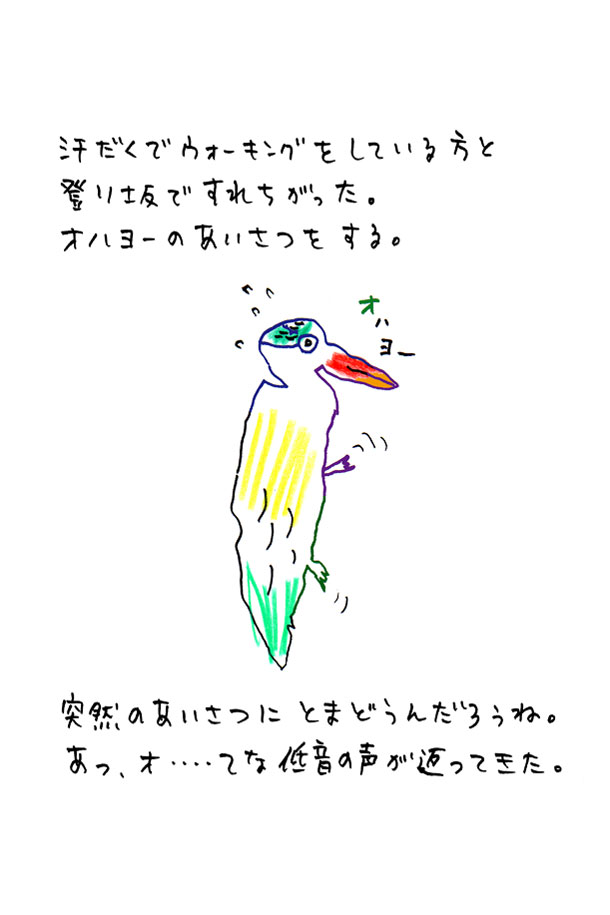 汗だくでウォーキングをしている方と
登り坂ですれちがった。
オハヨーのあいさつをする。
オハヨー
突然のあいさつにとまどうんだろうね。
あっ、オ‥‥てな低音の声が返ってきた。